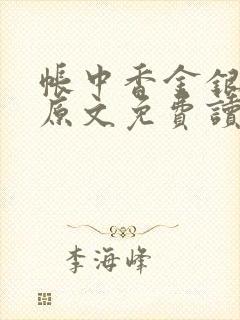 帳中香金銀
原文免費讀
李海峰